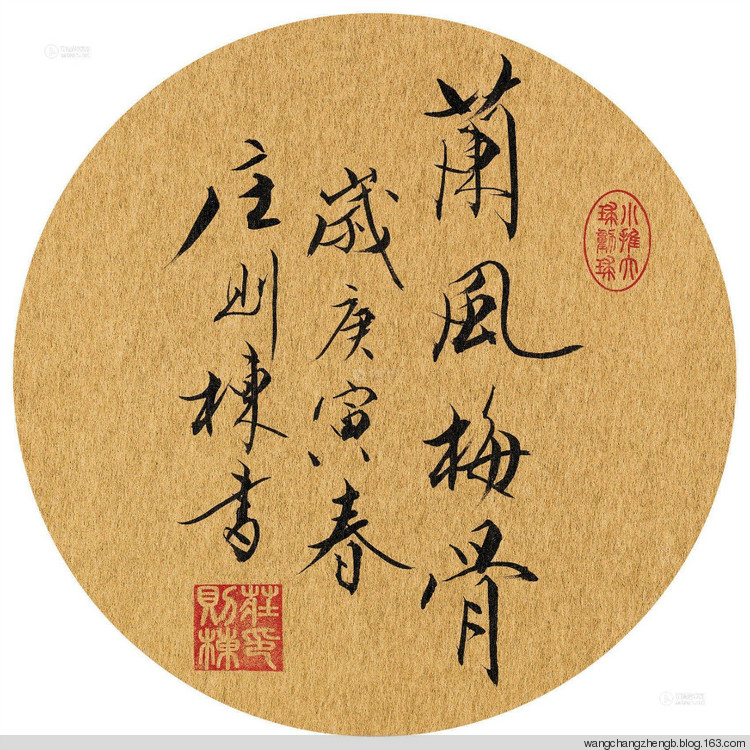 小球
推動
大球
蘭風梅骨
歲庚寅春
庄则棟書
莊則
棟印
wangchangzhengb.blog.163.com